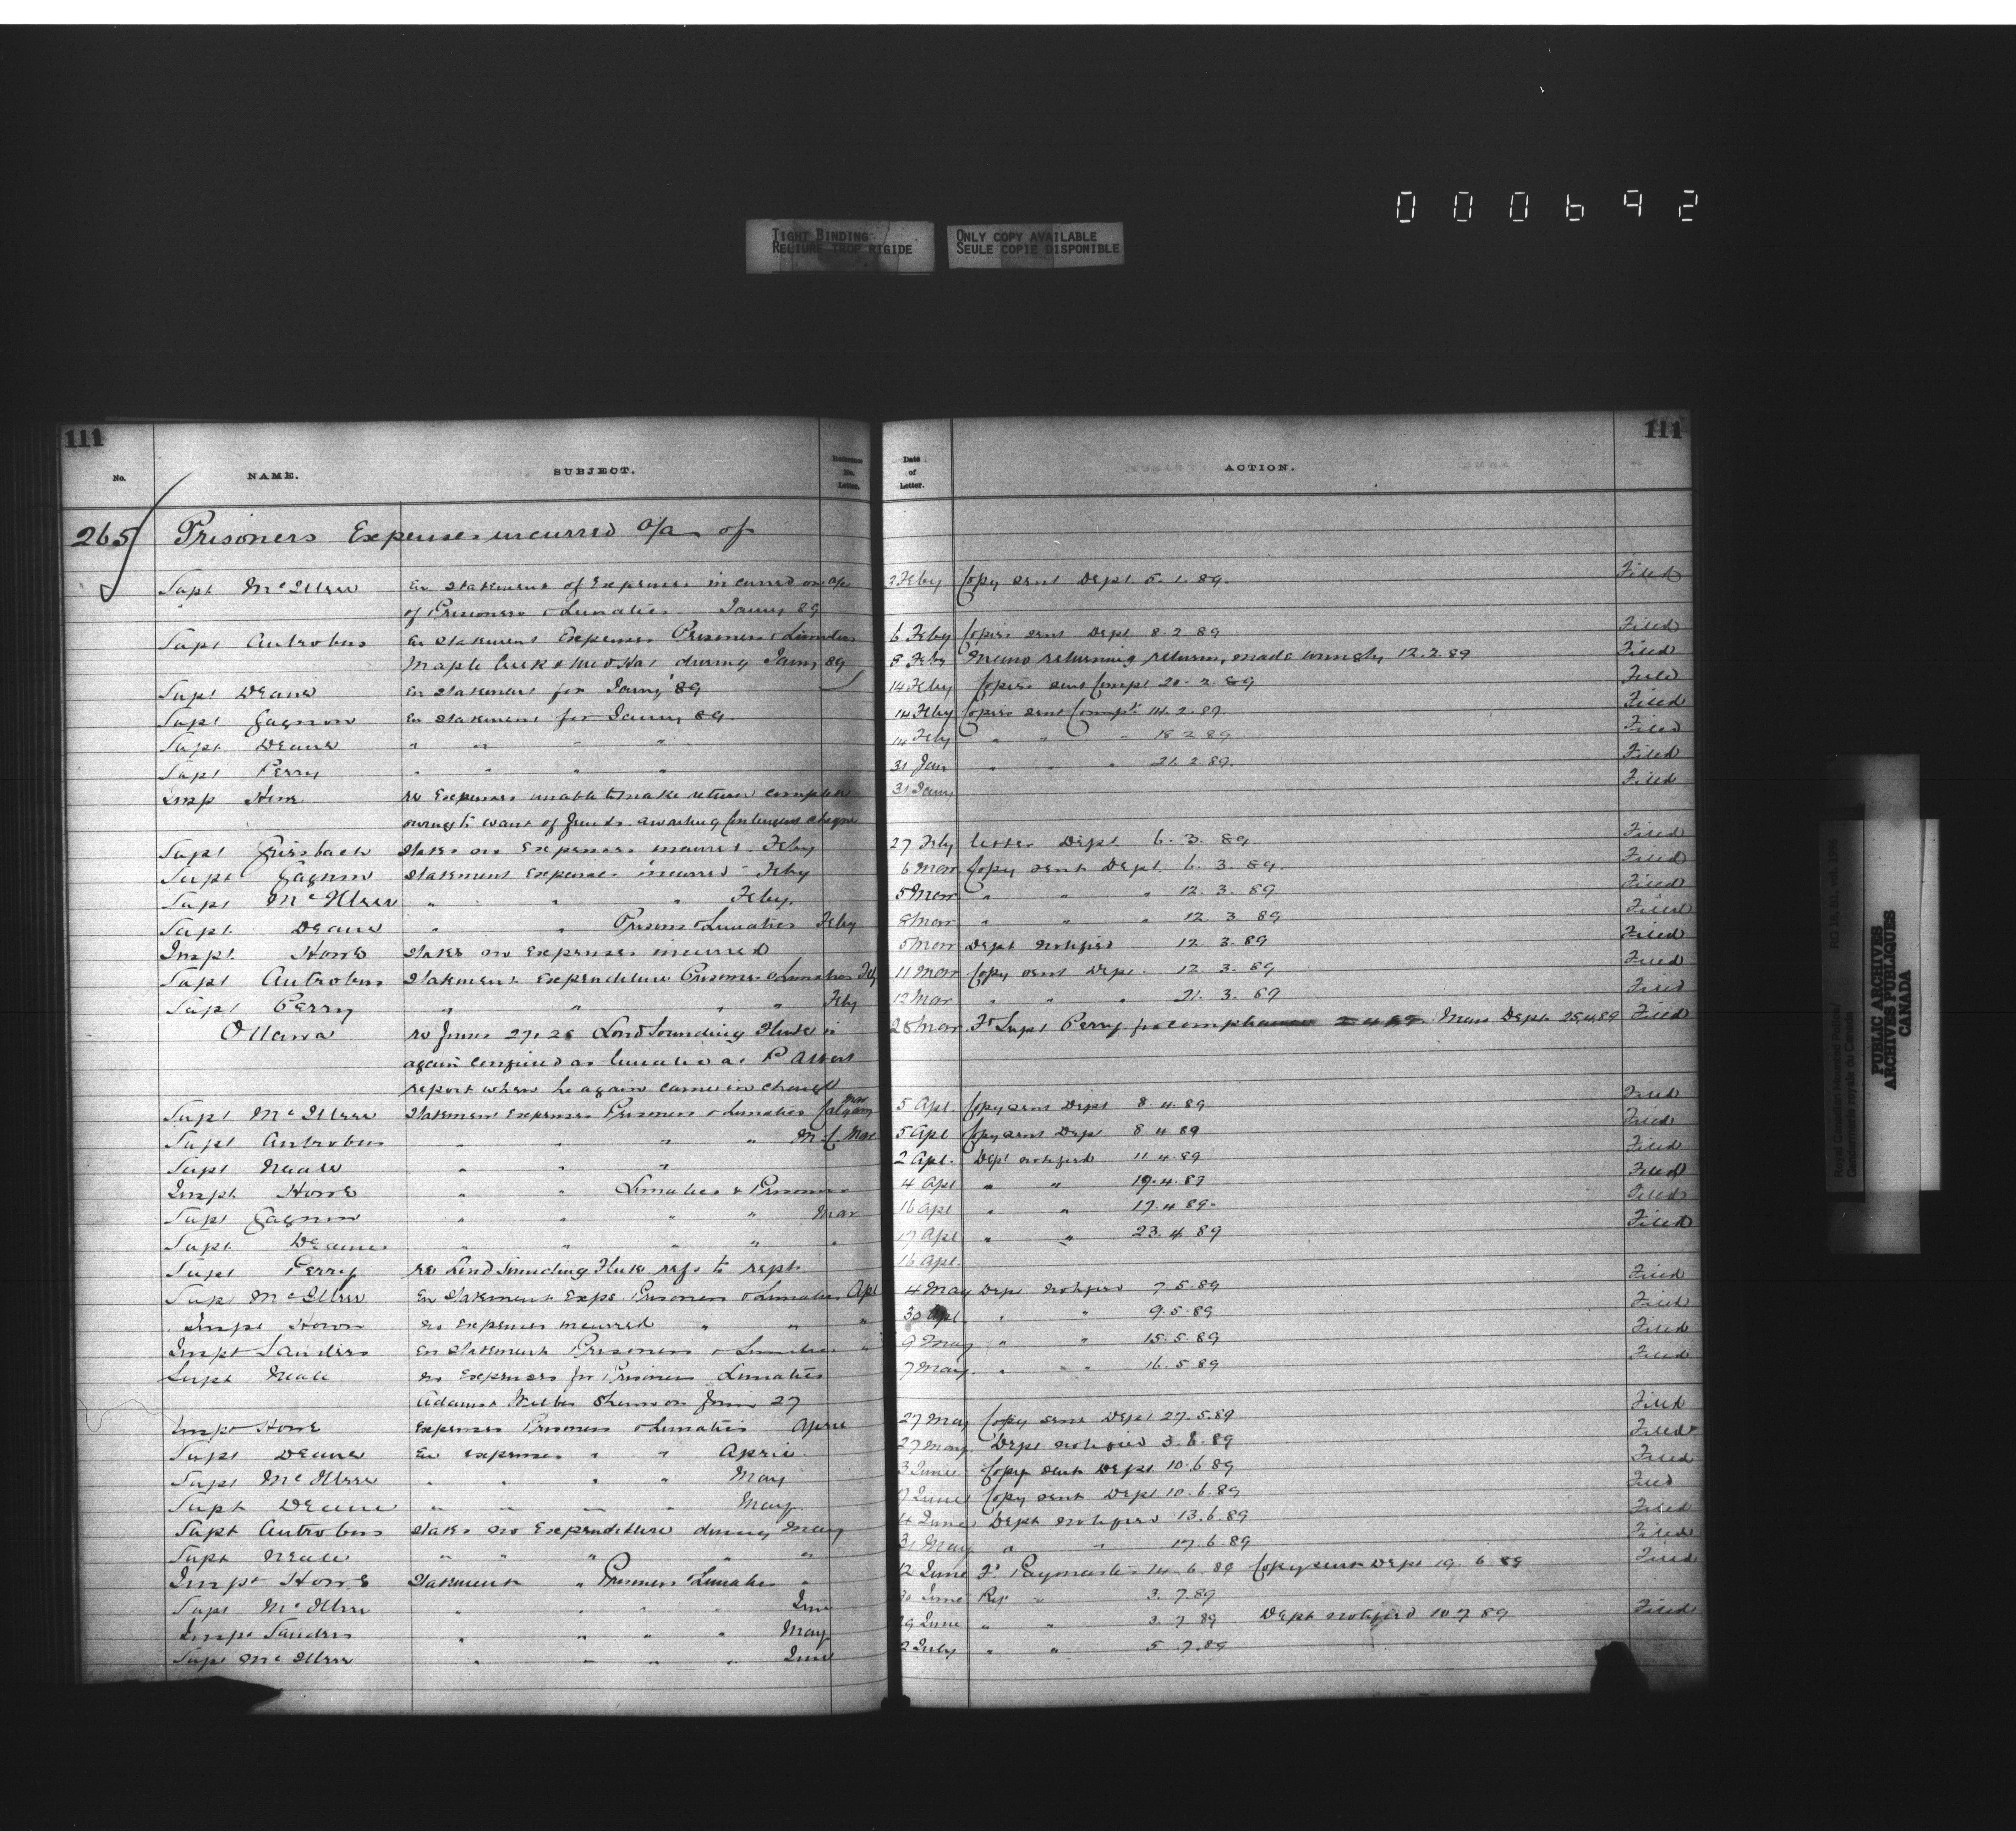 000692
TIGHT BINDING
RELIURE TROP RIGIDE
ONLY COPY AVAILABLE
SEULE COPIE DISPONIBLE
111 111
No. NAME. SUBJECT. Reference No. Letter. Date of Letter. ACTION.
265 Prisoners Expenses incurred o/a of
Supt McIllree En statement of Expenses incurred on a/c 3 Feby Copy sent Dept 5.1.89. Filed
of Prisoners & Lunatics Jany 89
Supt Antrobus En statement Expenses Prisoners & Lunatics 6 Feby Copies sent Dept 8.2.89 Filed
Maple Creek & Med Hat during Jany 89 8 Feby Memo returning returns, made wrongly 12.2.89 Filed
Supt Deane En statement for Jany '89 14 Feby Copies sent Compt 20.2.89 Filed
Supt Gagnon En statement for Jany 89 14 Feby Copies sent Compt 14.2.89. Filed
Supt Deane " " " " 14 Feby " " " 18 2 89 Filed
Supt Perry " " " " 31 Jan " " " 21.2.89. Filed
Insp Howe re Expenses unable to make return complete 31 Jany Filed
owing to want of funds awaiting Contingent cheque
Supt Griesbach States no Expenses incurred Feby 27 Feby letter Dept 6.3.89 Filed
Supt Gagnon Statement Expenses incurred Feby 6 Mar Copy sent Dept. 6.3.89. Filed
Supt McIllree " " " Feby. 5 Mar " " " 12.3.89 Filed
Supt Deane " " Prisons & Lunatics Feby 8 Mar " " " 12 3 89 Filed
Inspt. Howe States no Expenses incurred 5 Mar Dept Notified 12.3.89 Filed
Supt Antrobus Statement Expenditure Prisoners & Lunatics Feby 11 Mar Copy sent Dept. 12 3.89 Filed
Supt Perry " " " " Feby 12 Mar " " " 21.3.89 Filed
Ottawa re from 27, 28 Loud Sounding Flute is 28 Mar Fd Supt Perry for compliance Memo Dept 25.4.89 Filed
again confined as lunatic at P Albert
report when he again came in charge
Supt McIllree Statement Expenses Prisoners & Lunatics Calgary Mar 5 Apl. Copy sent Dept 8.4.89 Filed
Supt Antrobus " " " " M.C. Mar 5 Apl Copy sent Dept 8 4 89 Filed
Supt Neale " " " 2 Apl. Dept notified 11.4.89 Filed
Inspt Howe " " Lunatics & Prisoners 4 Apl " " 19.4.89 Filed
Supt Gagnon " " " " Mar 16 Apl " " 17.4.89. Filed
Supt. Deane " " " " " 17 Apl " " 23.4.89 Filed
Supt Perry re Loud Sounding Flute refs to rept 16 Apl.
Supt McIllree En Statement Exps. Prisoners & Lunatics Apl 4 May Dept Notified 7.5.89 Filed
Inspt Howe no expenses incurred " " " 30 Apl. " " 9.5.89 Filed
Inspt Sanders En Statement Prisoners & Lunatics " 9 May " " 15.5.89 Filed
Supt Neale no Expenses for Prisoners Lunatics 7 May. " " 16.5.89 Filed
from 27
Inspt Howe Expenses Prisoners & Lunatics April 27 May Copy sent Dept 27.5.89 Filed
Supt Deane En expenses " " April 27 May. Dept notified 3.6.89 Filed
Supt McIllree " " " " May 3 June Copy sent Dept 10.6.89 Filed
Supt Deane " " " " May 7 June Copy sent Dept 10.6.89 Filed
Supt Antrobus States no Expenditure during May 4 June Dept Notified 13.6.89 Filed
Supt Neale " " " " " 31 May " " 17.6.89 Filed
Inspt Howe Statement " Prisoners & Lunatics " 12 June Fd Paymaster 14.6.89 Copy sent Dept 19.6.89 Filed
Supt McIllree " " " " June 30 June Rep " 3.7.89
Inspt Sanders " " " " May 29 June " " 3 7 89 Dept notified 10 7 89 Filed
Supt McIllree " " " " June 2 July " " 5.7.89
Royal Canadian Mounted Police/
Gendarmerie royale du Canada
RG 18, B1, vol. 1996
PUBLIC ARCHIVES
ARCHIVES PUBLIQUES
CANADA